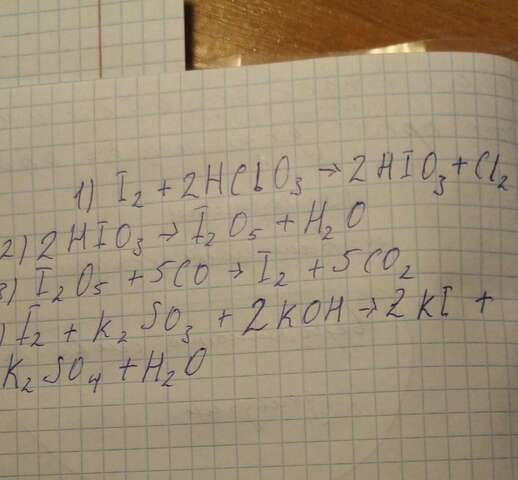 1) I₂ + 2HClO₃ → 2HIO₃ + Cl₂
2) 2HIO₃ → I₂O₅ + H₂O
3) I₂O₅ + 5CO → I₂ + 5CO₂
) I₂ + K₂SO₃ + 2KOH → 2KI +
K₂SO₄ + H₂O